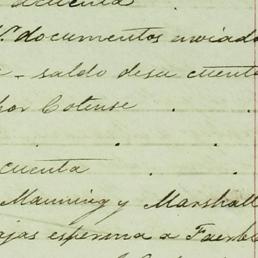 acuenta
documentos enviado
saldo desu cuenta
por Cotense
cuenta
Manning y Marshall
esperma a